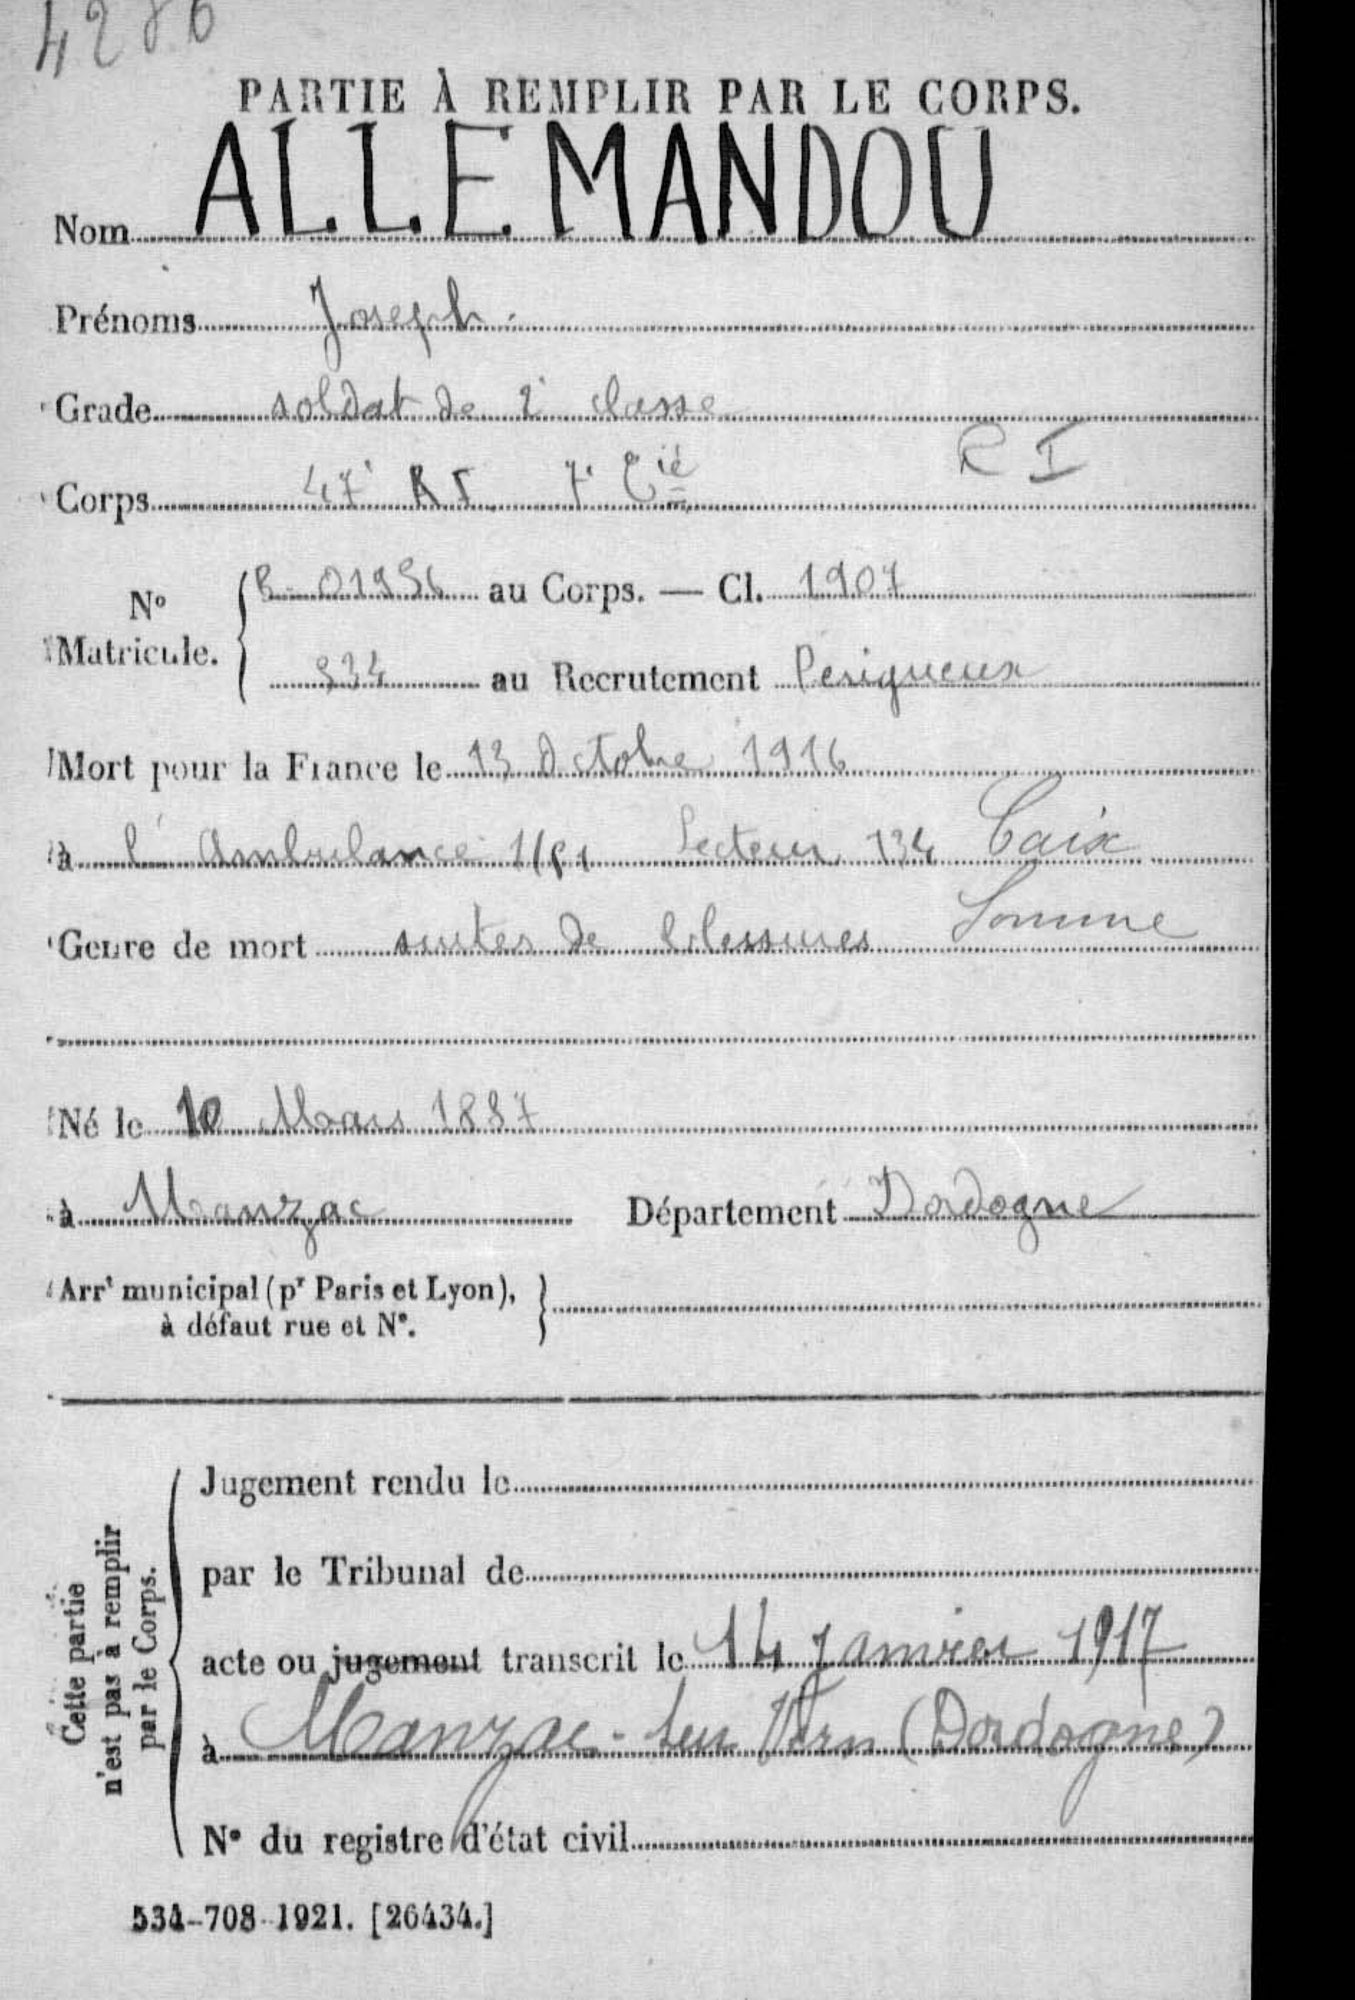 4286
PARTIE À REMPLIR PAR LE CORPS.
Nom ALLEMANDOU
Prénoms Joseph.
Grade soldat de 2e classe
R I
Corps 47e RI 7e Cie
N° Matricule. { B-01956 au Corps. — Cl. 1907
934 au Recrutement Périgueux
Mort pour la France le 13 Octobre 1916
à l'Ambulance Secteur 134 Caix
Somme
Genre de mort suites de blessures
Né le 10 Mars 1887
à Manzac Département Dordogne
Arrt municipal (pr Paris et Lyon), }
à défaut rue et N°.
Cette partie
n'est pas à remplir
par le Corps.
Jugement rendu le
par le Tribunal de
acte ou jugement transcrit le 14 janvier 1917
à Manzac-sur Vern (Dordogne)
N° du registre d'état civil
534-708-1921. [26434.]